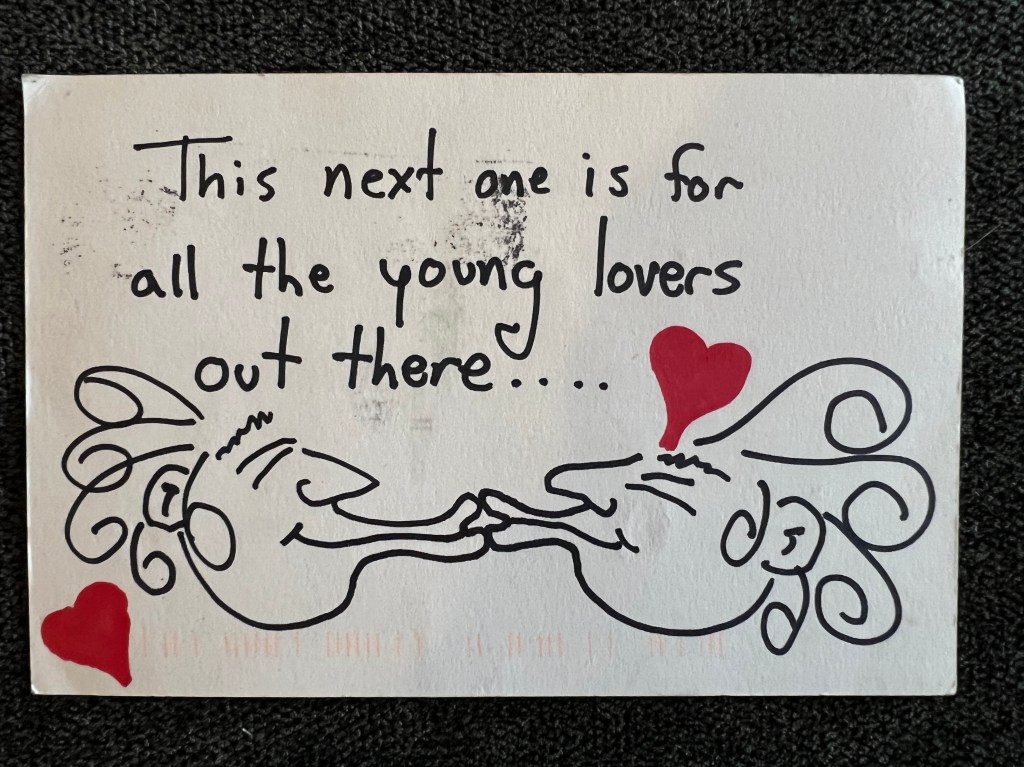 This next one is for
all the young lovers
out there....